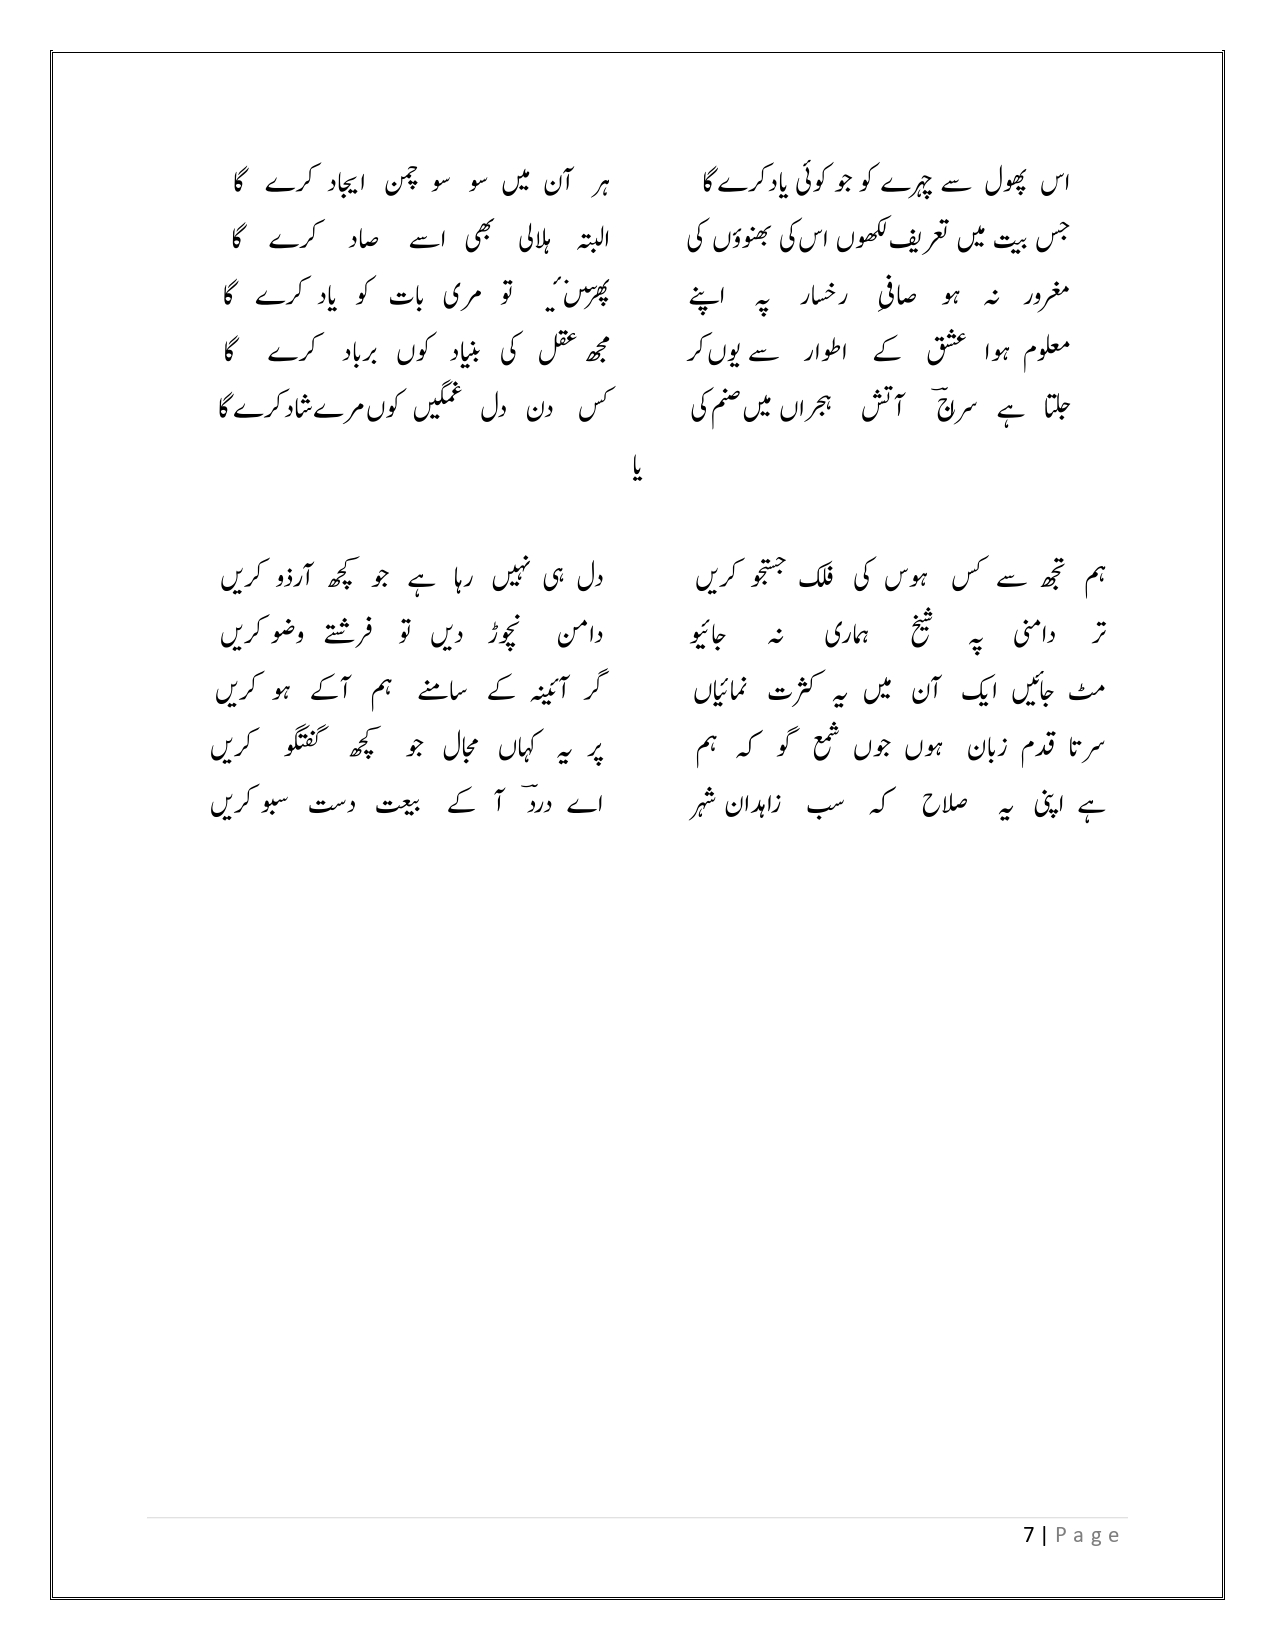 اس پھول سے چہرے کو جو کوئی یاد کرے گا ہر آن میں سو سو چمن ایجاد کرے گا
جس بیت میں تعریف لکھوں اس کی بھنوؤں کی البتہ ہلالی بھی اسے صاد کرے گا
مغرور نہ ہو صافیِ رخسار پہ اپنے تو مری بات کو یاد کرے گا
معلوم ہوا عشق کے اطوار سے یوں کر مجھ عقل کی بنیاد کوں برباد کرے گا
جلتا ہے سراجؔ آتش ہجراں میں صنم کی کس دن دل غمگیں کوں مرے شاد کرے گا
یا
ہم تجھ سے کس ہوس کی فلک جستجو کریں دل ہی نہیں رہا ہے جو کچھ آرذو کریں
تر دامنی پہ شیخ ہماری نہ جائیو دامن نچوڑ دیں تو فرشتے وضو کریں
مٹ جائیں ایک آن میں یہ کثرت نمائیاں گر آئینہ کے سامنے ہم آکے ہو کریں
سر تا قدم زبان ہوں جوں شمع گو کہ ہم پر یہ کہاں مجال جو کچھ گفتگو کریں
ہے اپنی یہ صلاح کہ سب زاہدان شہر اے دردؔ آ کے بیعت دست سبو کریں
7 | Page